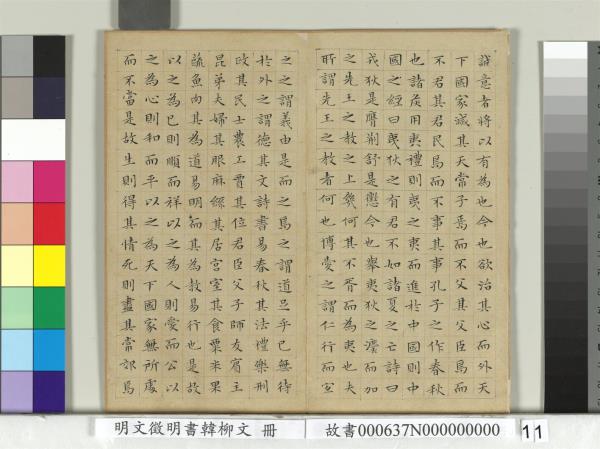 誠意者將以有為也今也欲治其心而外天
下國家滅其天常子焉而不父其父臣焉而
不君其君民焉而不事其事孔子之作春秋
也諸侯用夷禮則夷之夷而進於中國則中
國之經曰夷狄之有君不如諸夏之亡詩曰
戎狄是膺荊舒是懲今也舉夷狄之法而加
之先王之教之上幾何其不胥而為夷也夫
所謂先王之教者何也博愛之謂仁行而宜
之之謂義由是而之焉之謂道足乎己無待
於外之謂德其文詩書易春秋其法禮樂刑
政其民士農工賈其位君臣父子師友賓主
昆弟夫婦其服麻絲其居宮室其食粟米果
蔬魚肉其為道易明而其為教易行也是故
以之為己則順而祥以之為人則愛而公以
之為心則和而平以之為天下國家無所處
而不當是故生則得其情死則盡其常郊焉
明文徵明書韓柳文 冊
故書000637N000000000
11